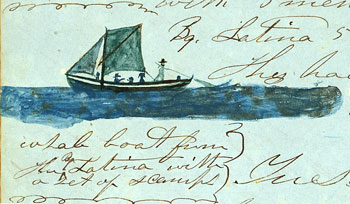 with
Bq. Latina 5
They ha
whale boat from
the Latina with
a set of scamps